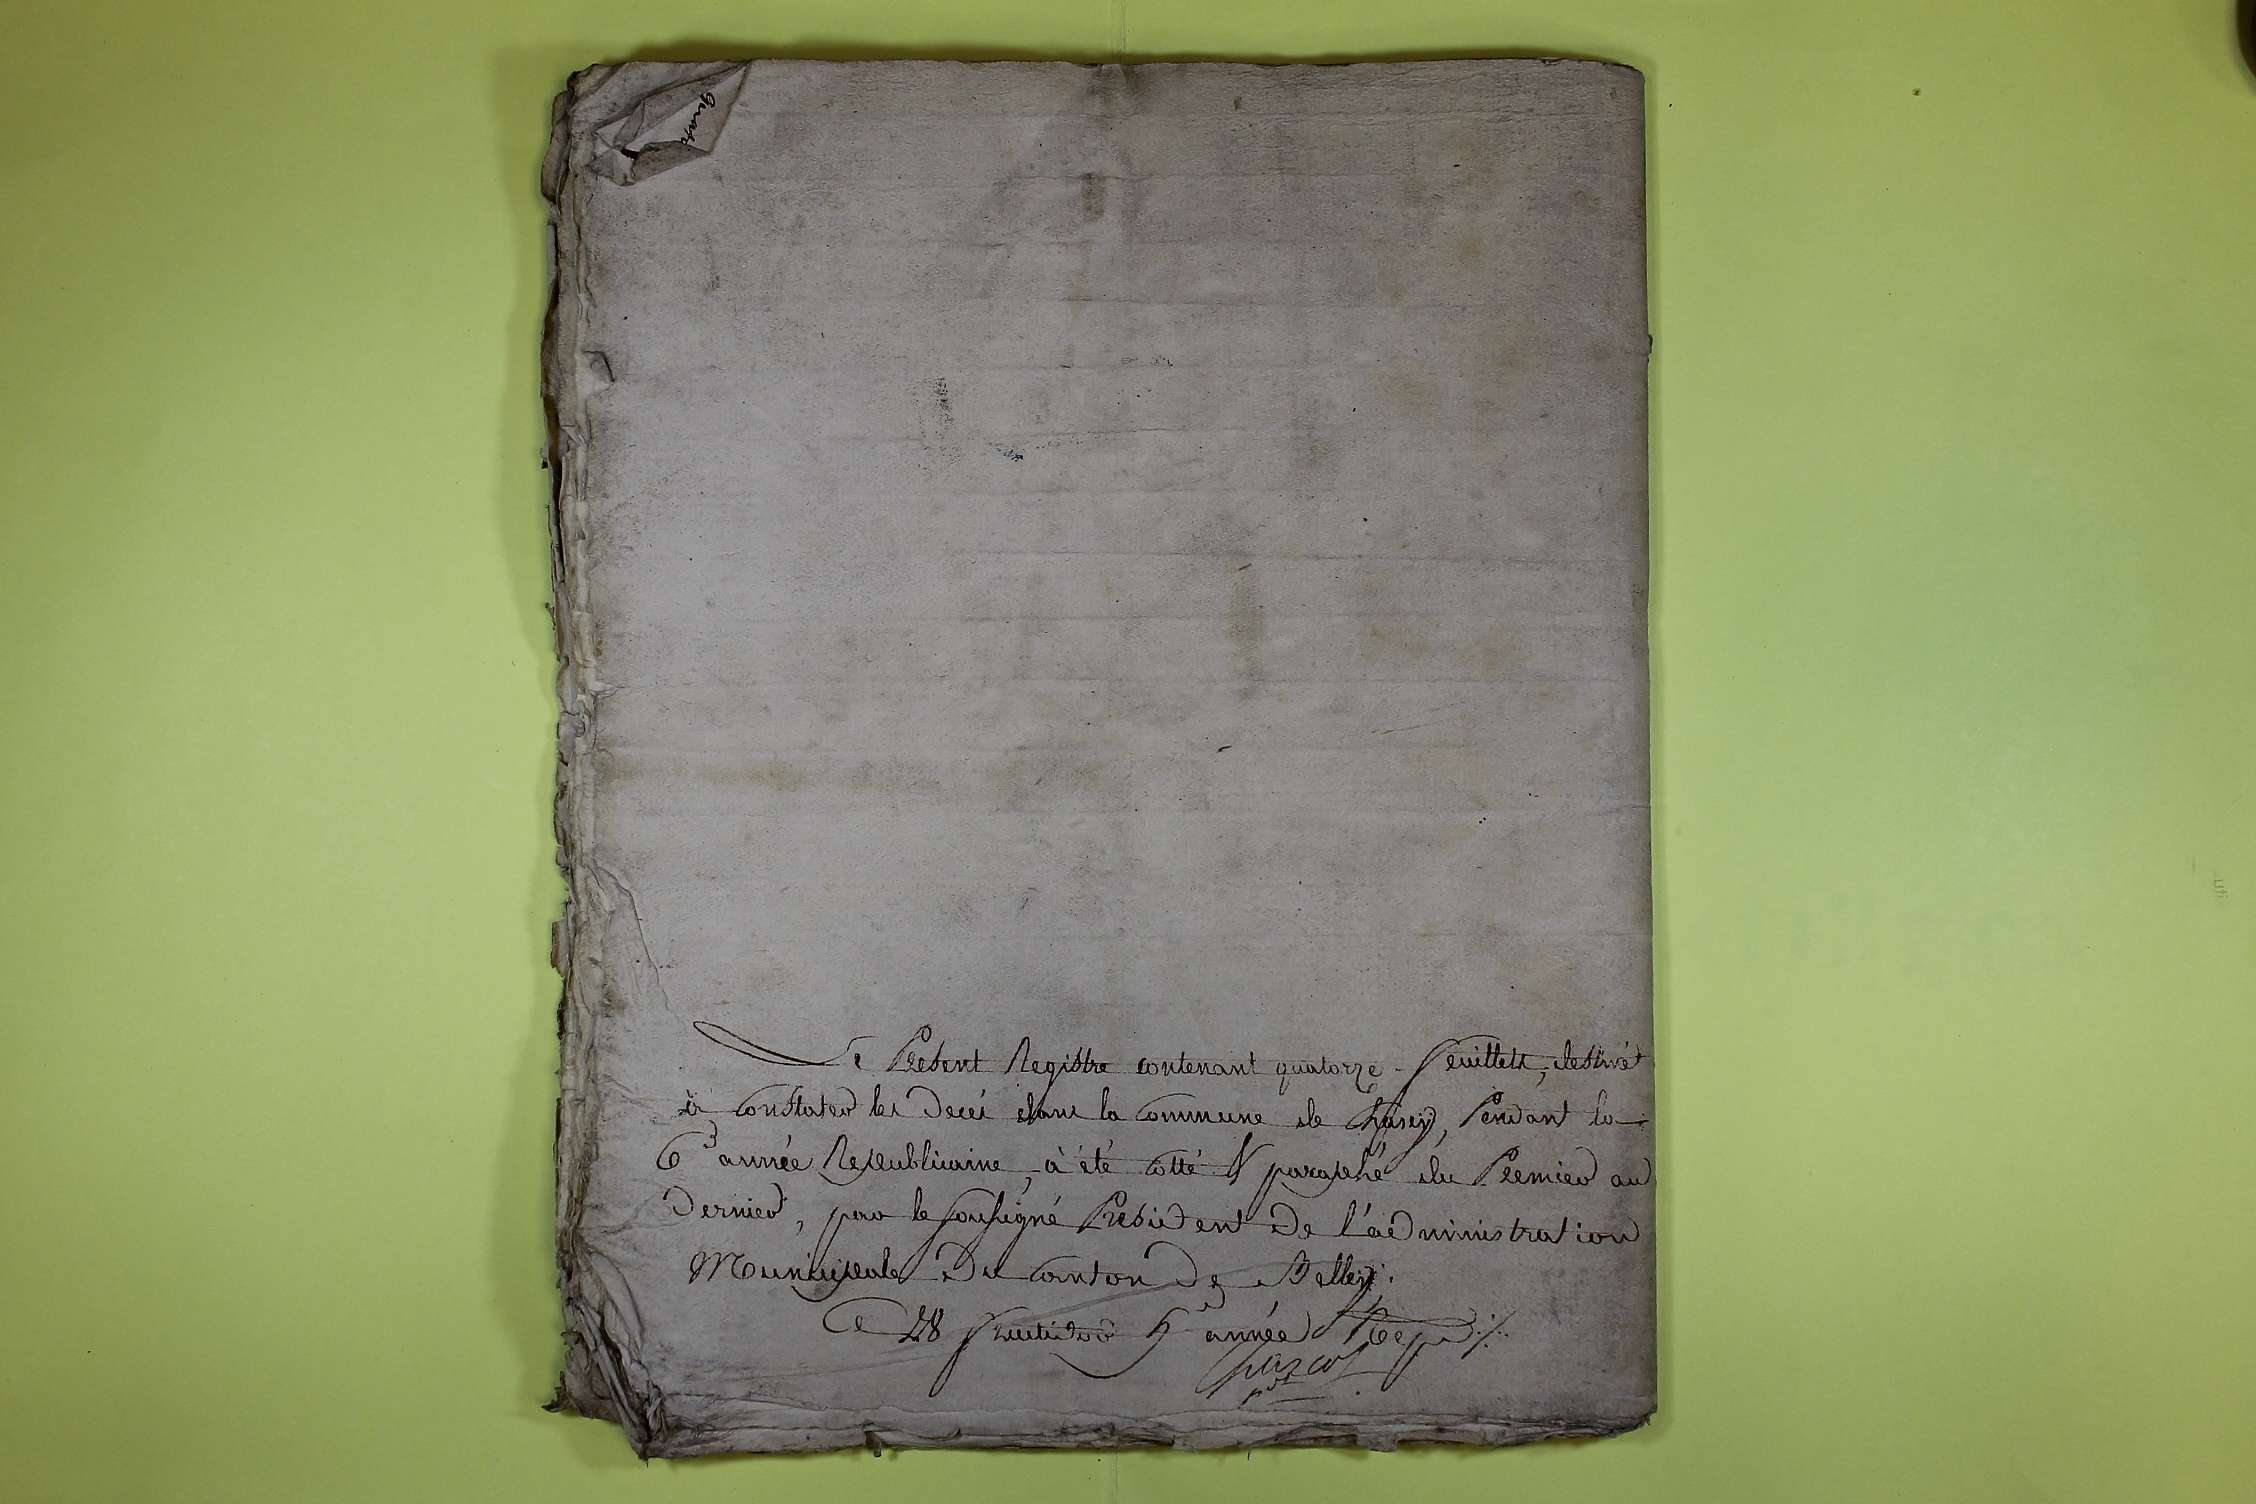 Le Present Registre contenant quatorze feuillets, destiné
à constater les decés dans la commune de Chasey, Pendant la
6e année Republicaine, à été cotté & paraphé du Premier au
Dernier, par le soussigné President De l'administration
Municipale Du canton De Belley.
Ce 28 fructidor 5e année Rep